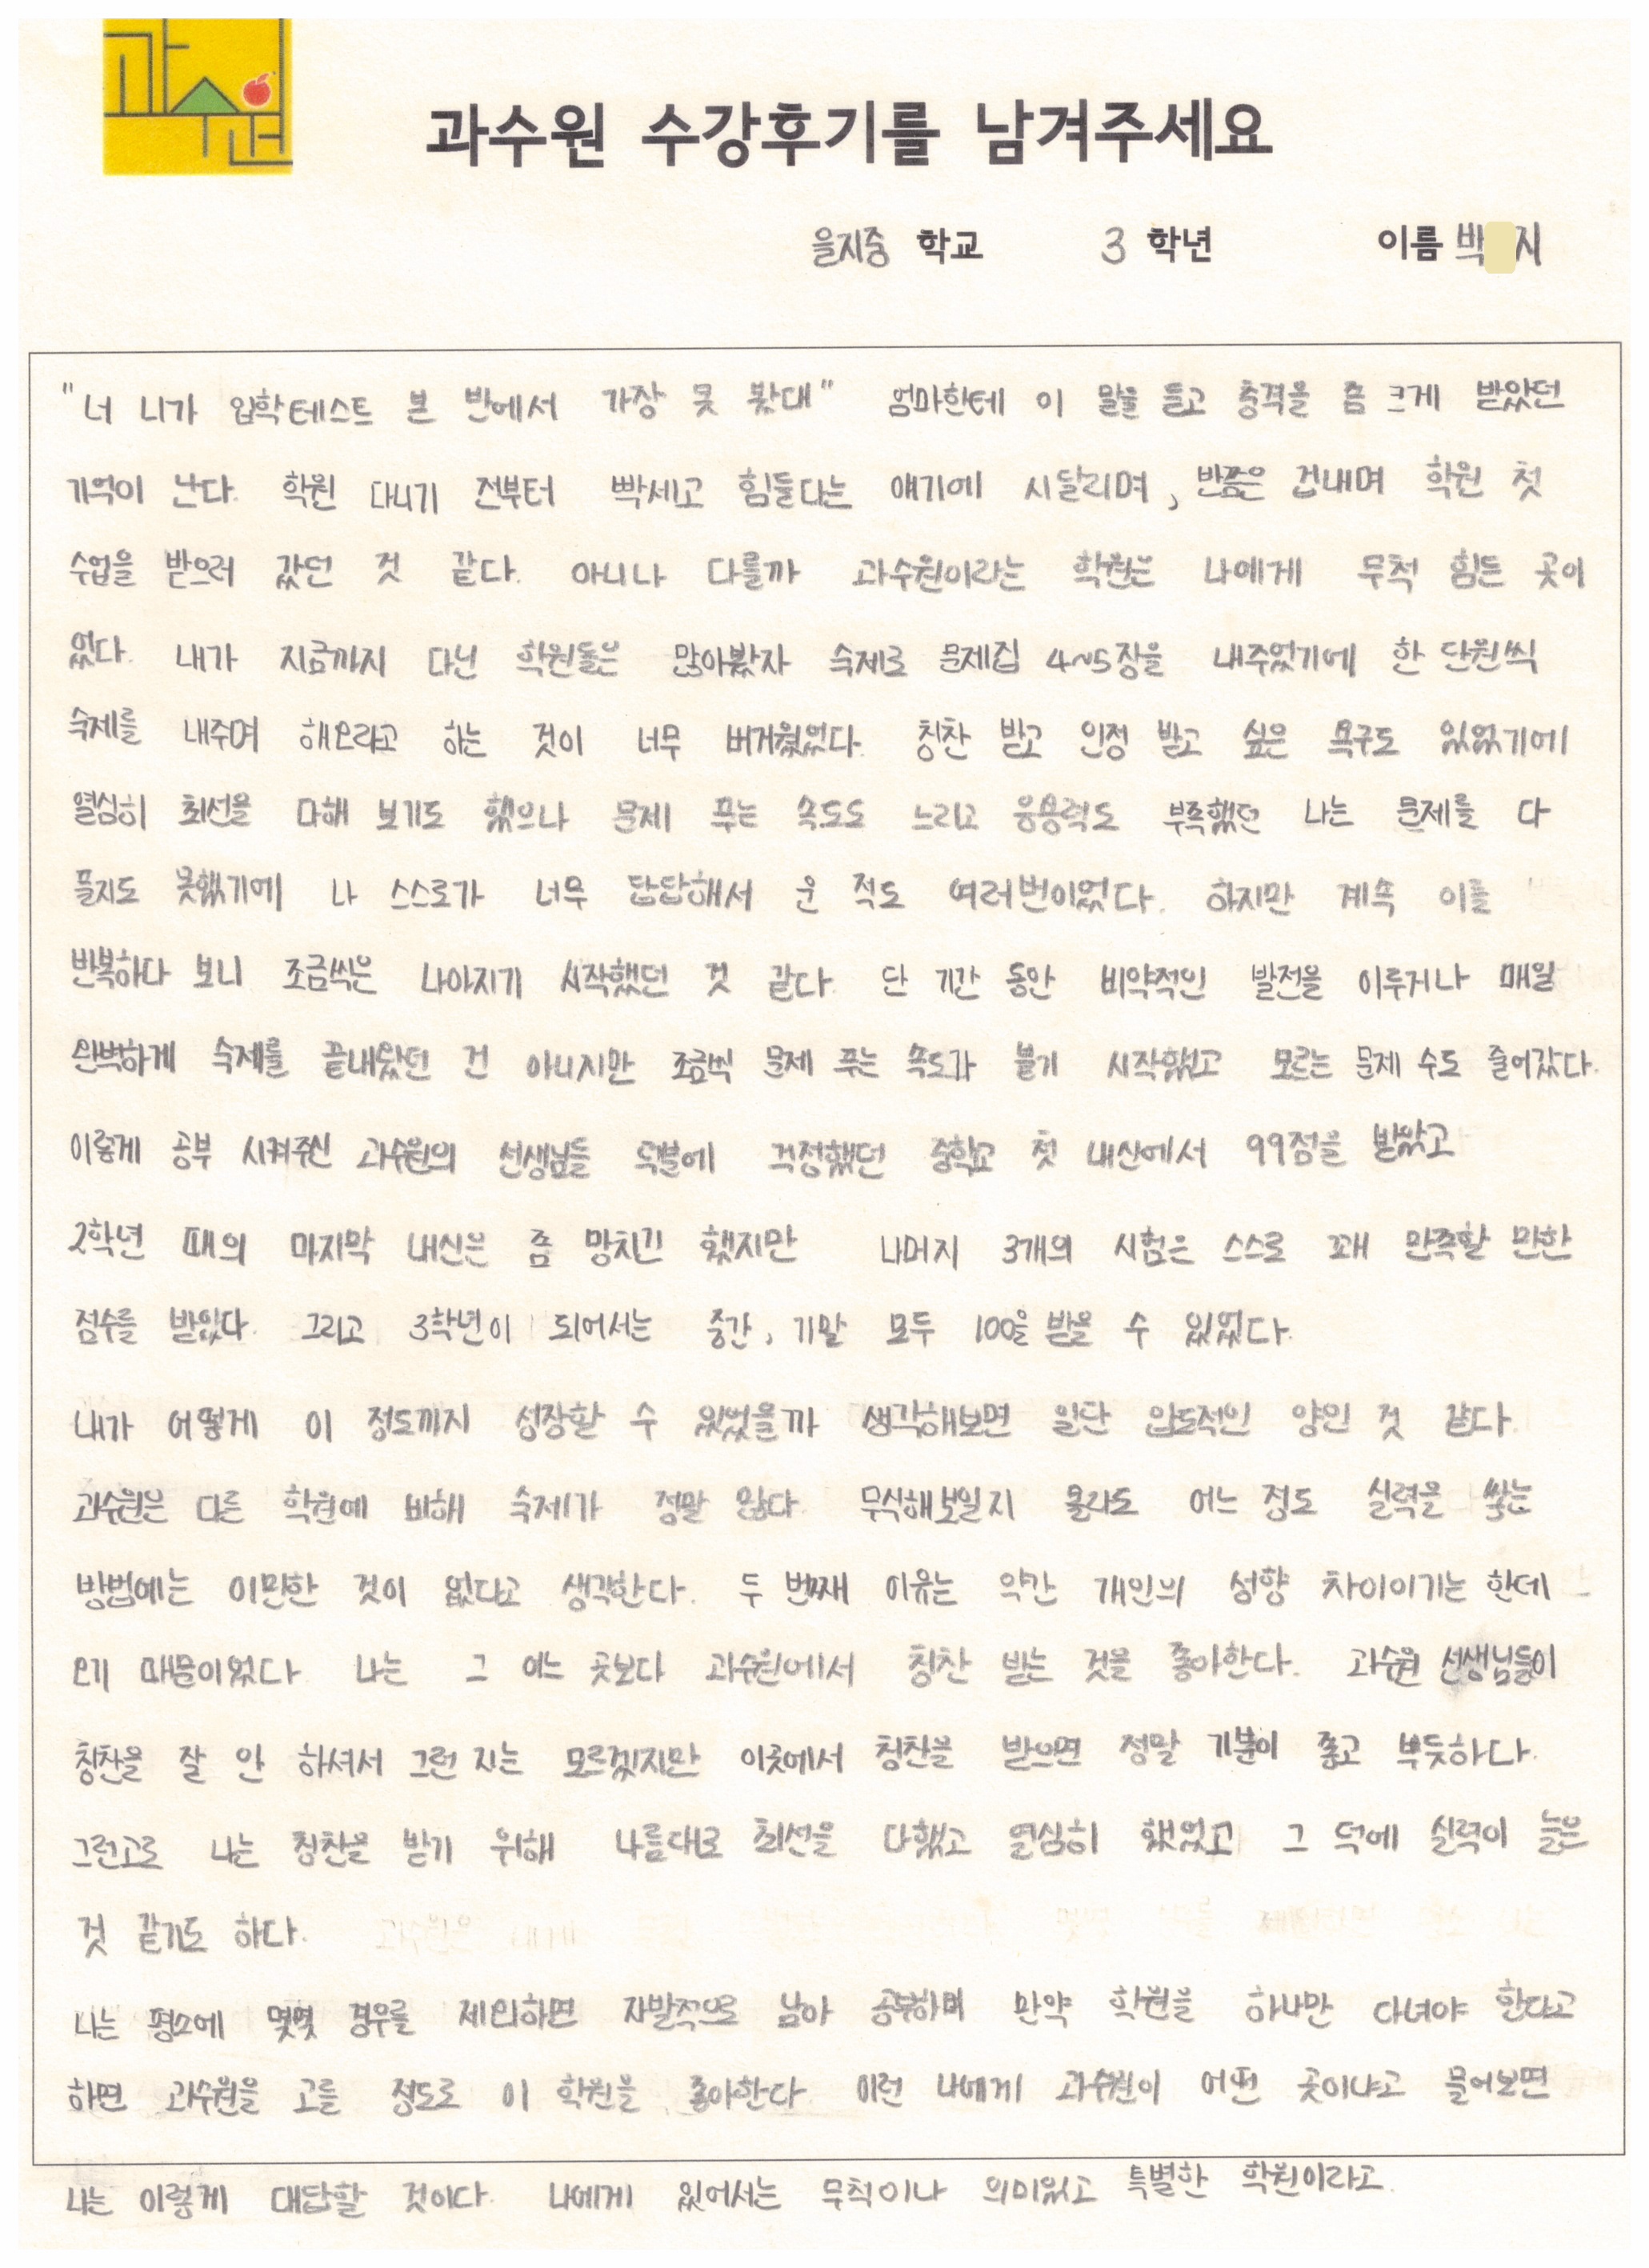 과수원
과수원 수강후기를 남겨주세요
을지중 학교 3 학년 이름 박 지
"너 니가 입학테스트 본 반에서 가장 못 봤대" 엄마한테 이 말을 듣고 충격을 좀 크게 받았던
기억이 난다. 학원 다니기 전부터 빡세고 힘들다는 얘기에 시달리며, 반쯤은 겁내며 학원 첫
수업을 받으러 갔던 것 같다. 아니나 다를까 과수원이라는 학원은 나에게 무척 힘든 곳이
었다. 내가 지금까지 다닌 학원들은 많아봤자 숙제로 문제집 4~5장을 내주었기에 한 단원씩
숙제를 내주며 해오라고 하는 것이 너무 버거웠었다. 칭찬 받고 인정 받고 싶은 욕구도 있었기에
열심히 최선을 다해 보기도 했으나 문제 푸는 속도도 느리고 응용력도 부족했던 나는 문제를 다
풀지도 못했기에 나 스스로가 너무 답답해서 운 적도 여러번이었다. 하지만 계속 이를
반복하다 보니 조금씩은 나아지기 시작했던 것 같다. 단 기간 동안 비약적인 발전을 이루거나 매일
완벽하게 숙제를 끝내왔던 건 아니지만 조금씩 문제 푸는 속도가 붙기 시작했고 모르는 문제 수도 줄어갔다.
이렇게 공부 시켜주신 과수원의 선생님들 덕분에 걱정했던 중학교 첫 내신에서 99점을 받았고
2학년 때의 마지막 내신은 좀 망치긴 했지만 나머지 3개의 시험은 스스로 꽤 만족할 만한
점수를 받았다. 그리고 3학년이 되어서는 중간, 기말 모두 100을 받을 수 있었다.
내가 어떻게 이 정도까지 성장할 수 있었을까 생각해보면 일단 압도적인 양인 것 같다.
과수원은 다른 학원에 비해 숙제가 정말 많다. 무식해보일지 몰라도 어느 정도 실력을 쌓는
방법에는 이만한 것이 없다고 생각한다. 두 번째 이유는 약간 개인의 성향 차이이기는 한데
오기 때문이었다. 나는 그 어느 곳보다 과수원에서 칭찬 받는 것을 좋아한다. 과수원 선생님들이
칭찬을 잘 안 하셔서 그런 지는 모르겠지만 이곳에서 칭찬을 받으면 정말 기분이 좋고 뿌듯하다.
그런고로 나는 칭찬을 받기 위해 나름대로 최선을 다했고 열심히 했었고 그 덕에 실력이 늘은
것 같기도 하다.
나는 평소에 몇몇 경우를 제외하면 자발적으로 남아 공부하며 만약 학원을 하나만 다녀야 한다고
하면 과수원을 고를 정도로 이 학원을 좋아한다. 이런 나에게 과수원이 어떤 곳이냐고 물어보면
나는 이렇게 대답할 것이다. 나에게 있어서는 무척이나 의미있고 특별한 학원이라고.